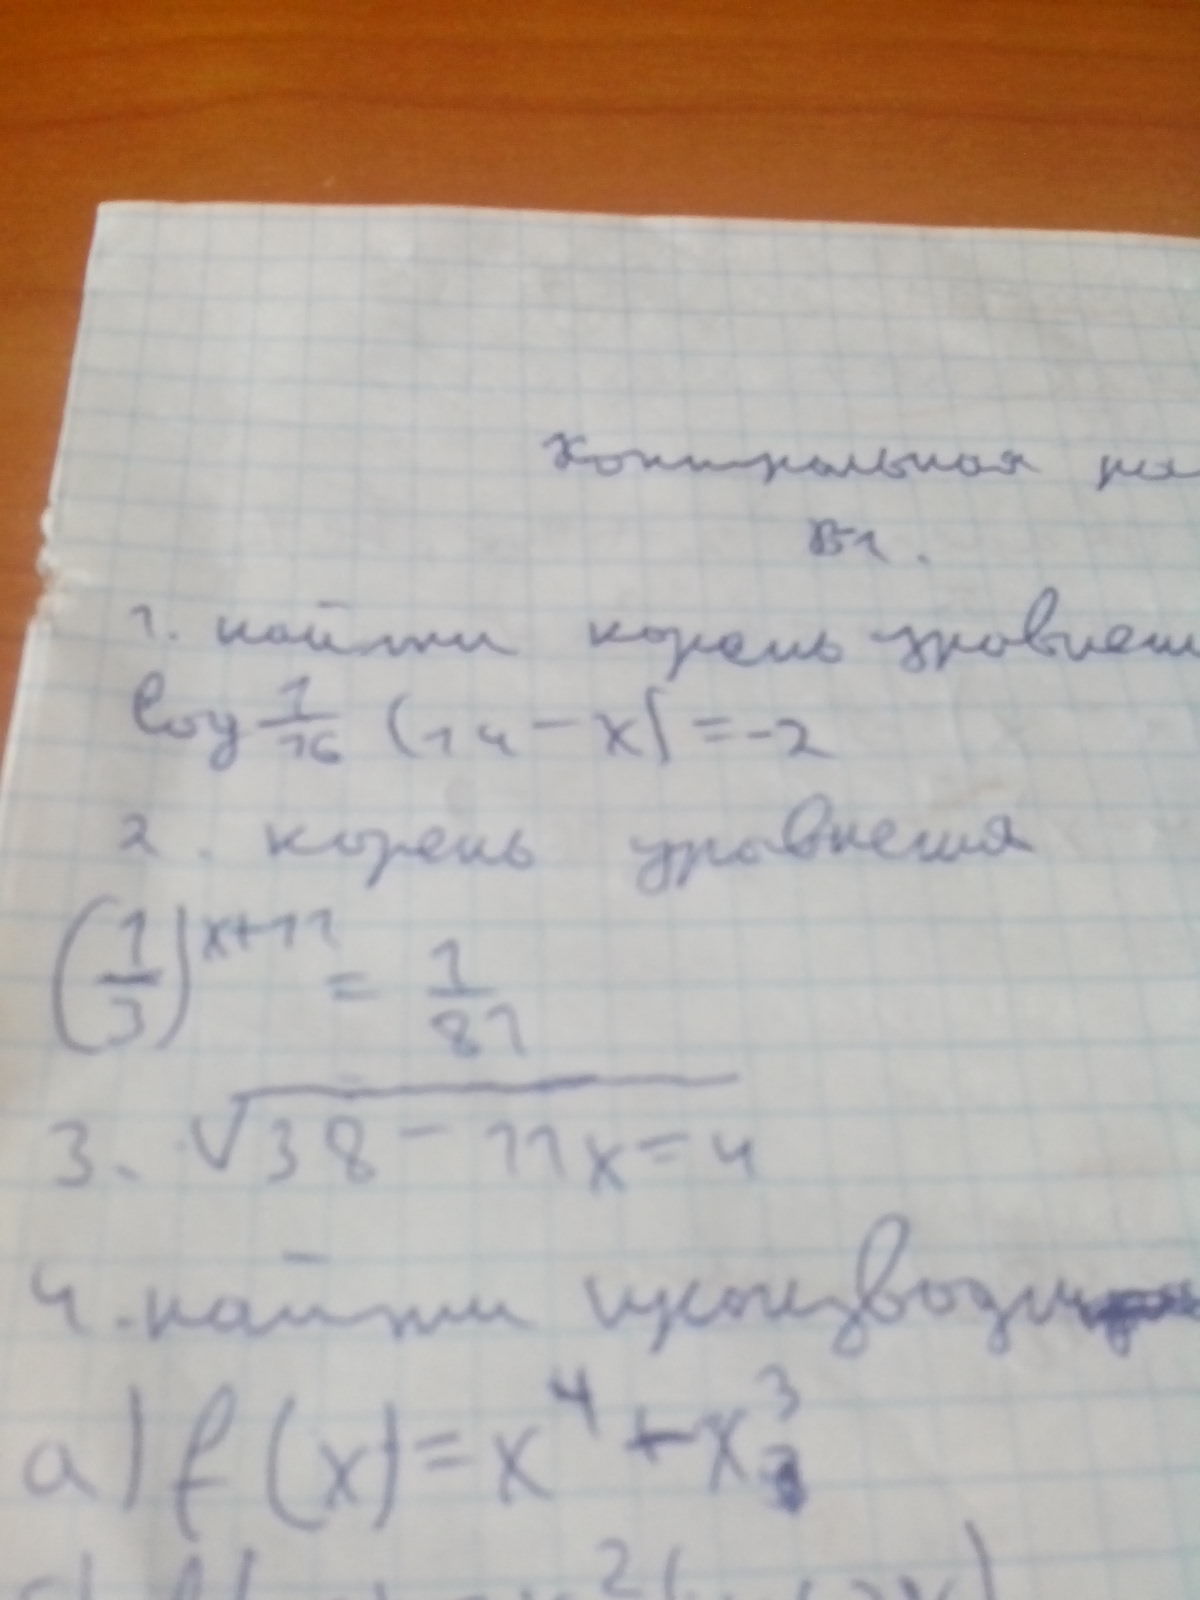 Контрольная ра
В1.
1. найти корень уравнен
log 1/16 (14 - x) = -2
2. корень уравнения
(1/3)^x+11 = 1/81
3. √38 - 11x = 4
4. найти производ
a) f(x) = x^4 + x^3